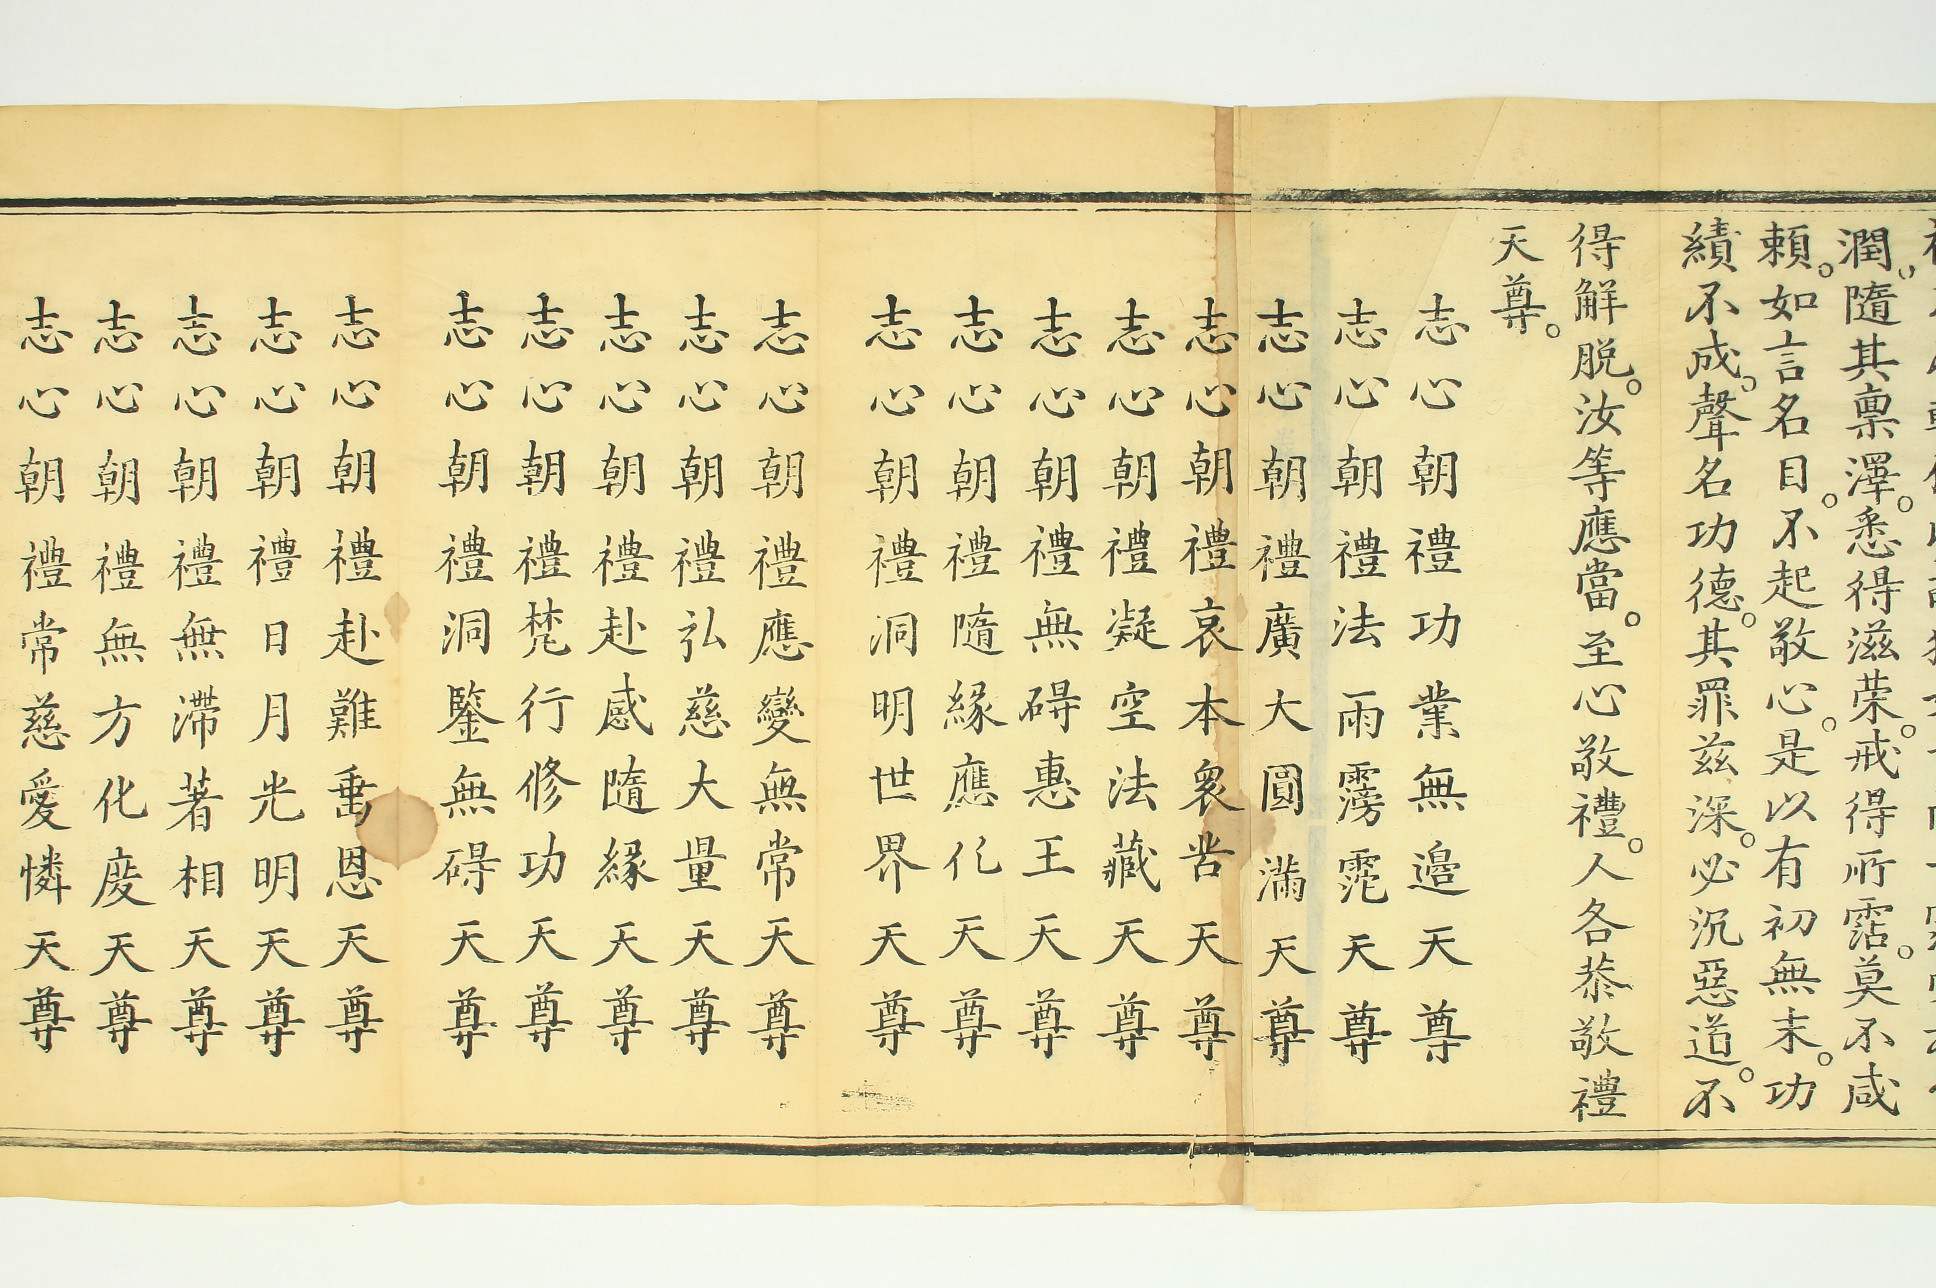 潤。隨其稟澤。悉得滋荣。戒得所霑。莫不咸
頼。如言名目。不起敬心。是以有初無末。功
績不成。聲名功德。其罪兹深。必沉惡道。不
得解脱。汝等應當。至心敬禮。人各恭敬禮
天尊。
志心朝禮功業無邉天尊
志心朝禮法雨霶霑天尊
志心朝禮廣大圓滿天尊
志心朝禮哀本衆苦天尊
志心朝禮凝空法藏天尊
志心朝禮無碍惠王天尊
志心朝禮隨緣應化天尊
志心朝禮洞明世界天尊
志心朝禮應變無常天尊
志心朝禮弘慈大量天尊
志心朝禮赴感隨緣天尊
志心朝禮梵行修功天尊
志心朝禮洞鑒無碍天尊
志心朝禮赴難垂恩天尊
志心朝禮日月光明天尊
志心朝禮無滯著相天尊
志心朝禮無方化度天尊
志心朝禮常慈愛憐天尊